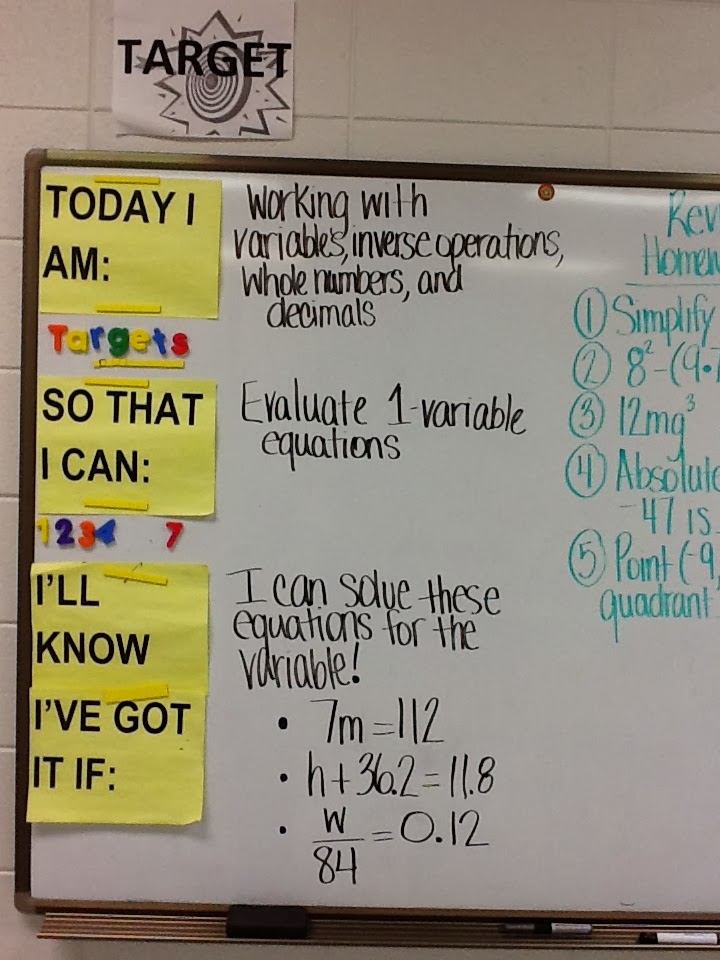 TARGET
TODAY I
AM:
Working with
variables, inverse operations,
whole numbers, and
decimals
Targets
SO THAT
I CAN:
Evaluate 1-variable
equations
1234 7
I'LL
KNOW
I'VE GOT
IT IF:
I can solve these
equations for the
variable!
• 7m = 112
• h + 36.2 = 11.8
• w/84 = 0.12
Rev
Homew
① Simplify
② 8²-(9·7
③ 12mg³
④ Absolute
-47 is
⑤ Point (-9,
quadrant